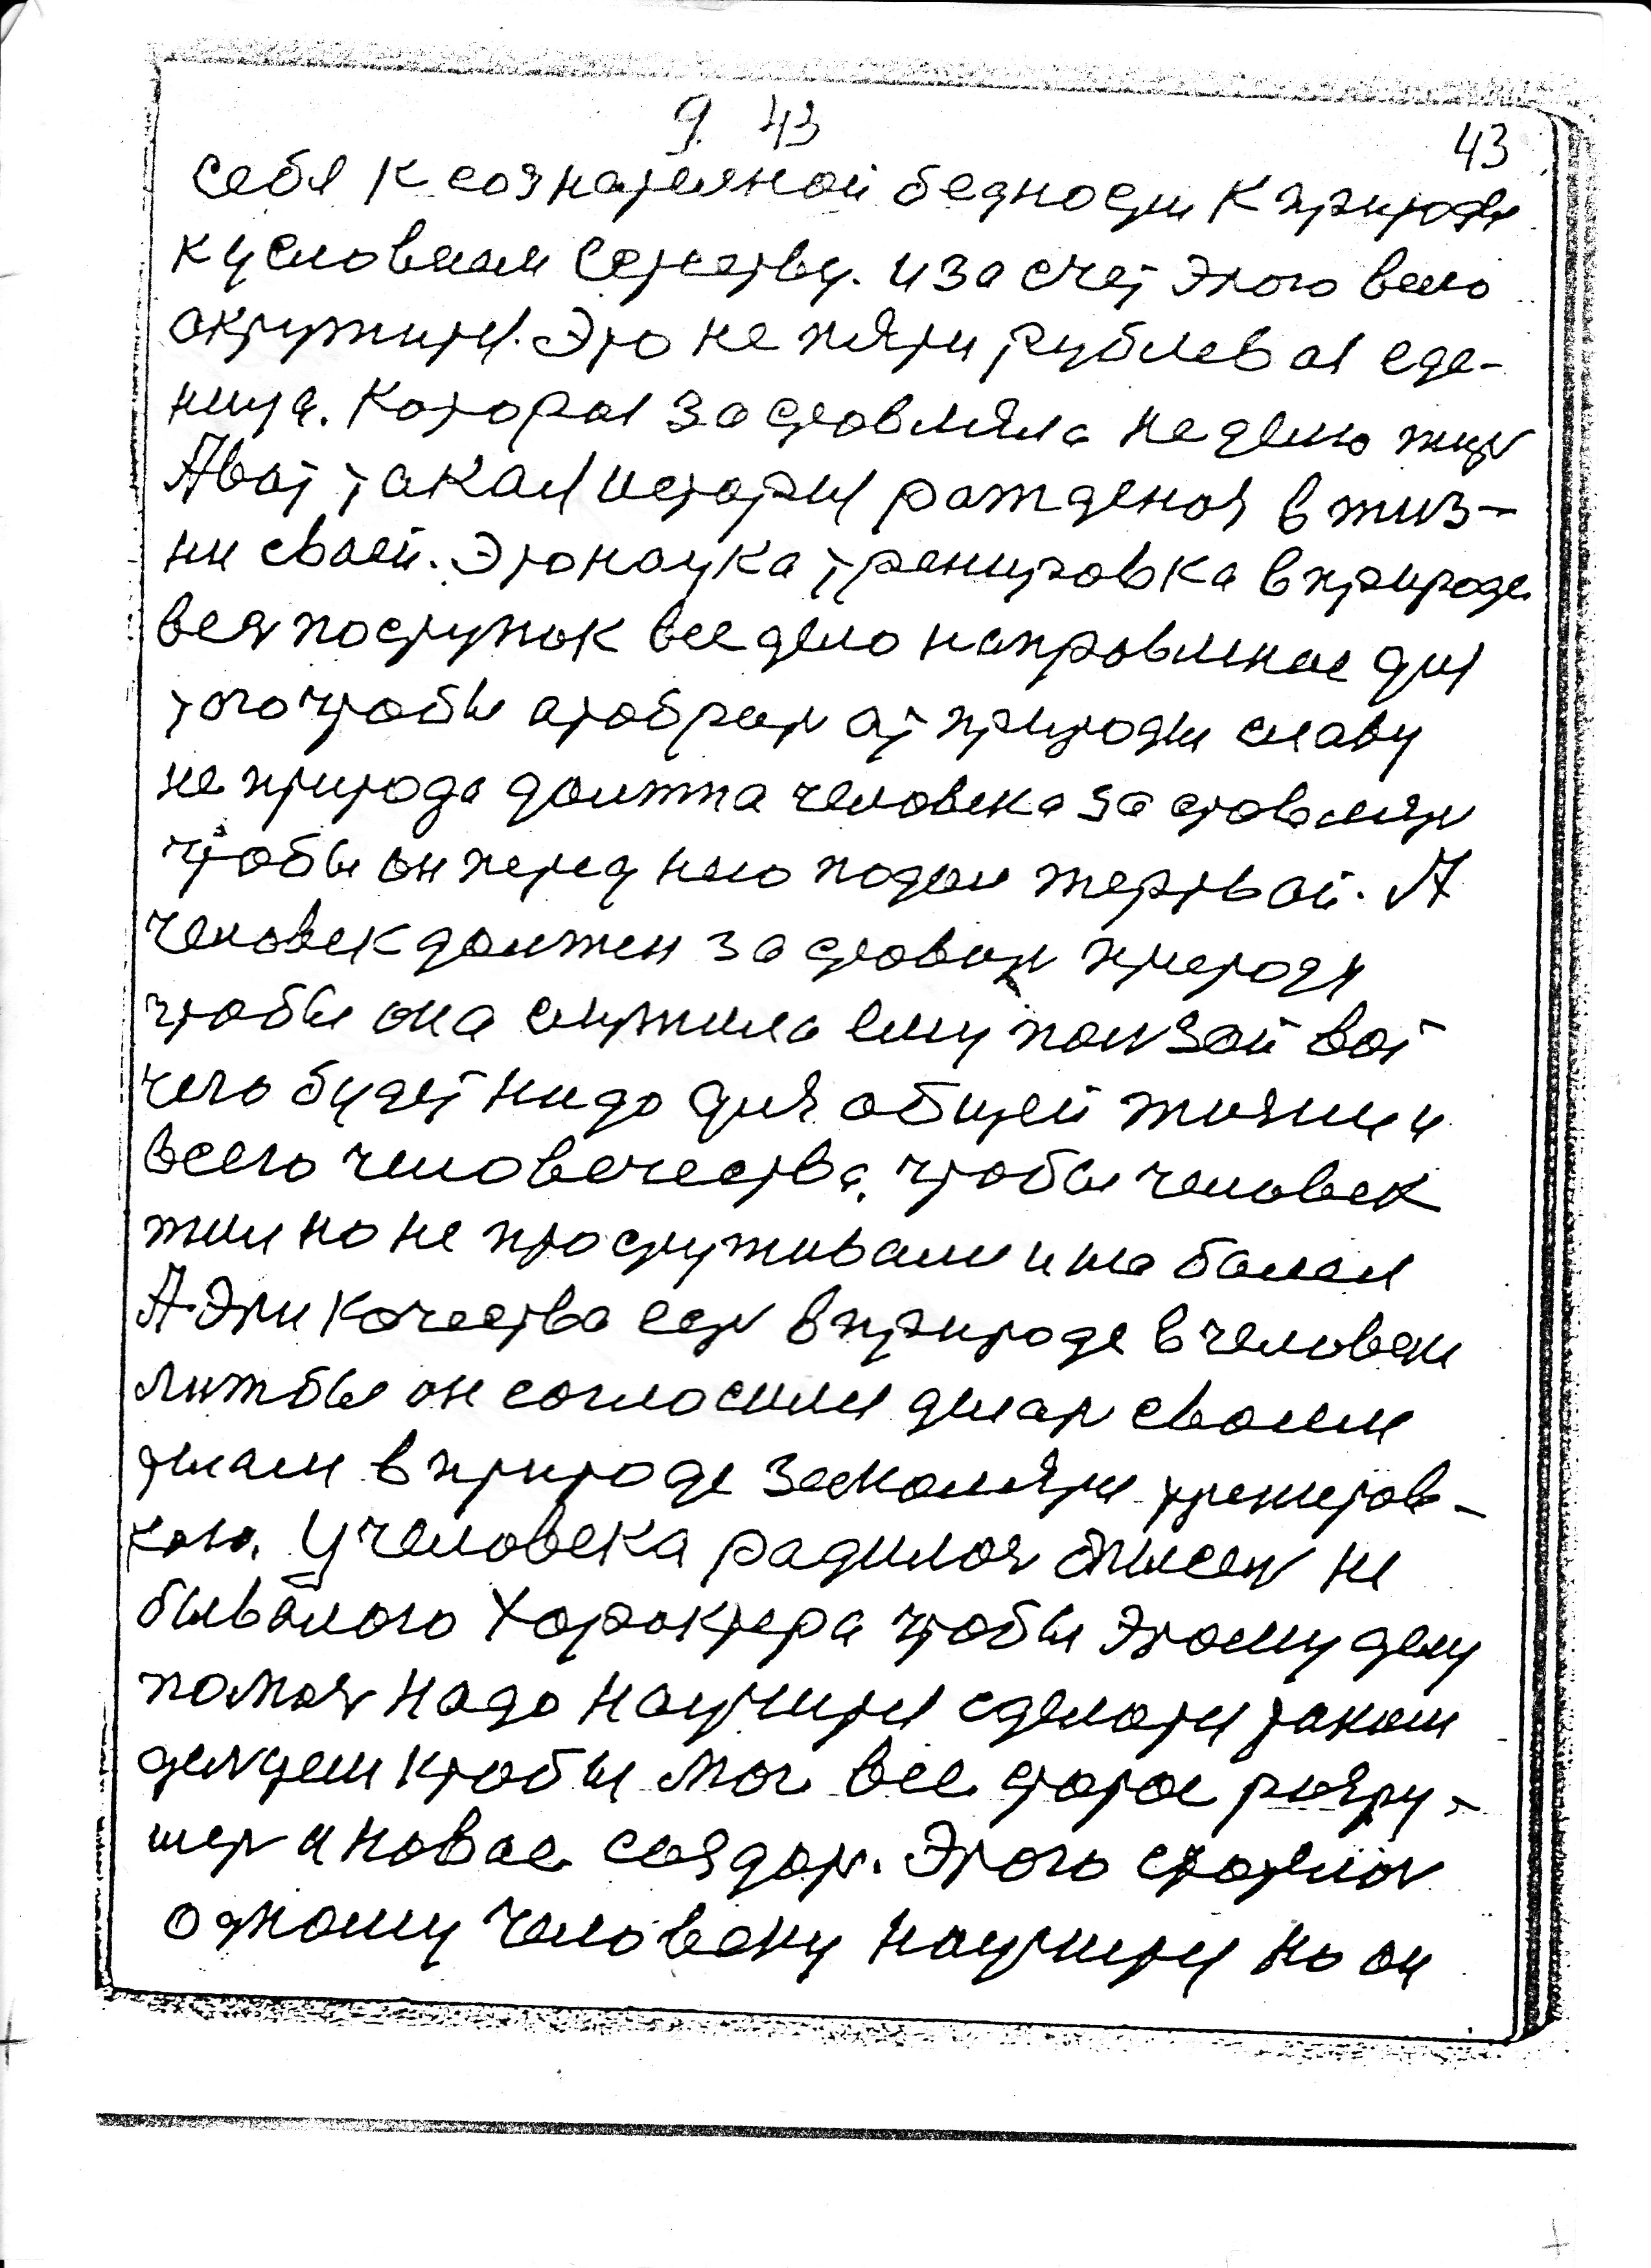 9. 43
43
себя к сознателной бедности к природе
к условием естеству. и за счет этого всего
окружится. Это не пяти рублевоя еде-
ница. Которая заставляла неделю жит
А вот такая история рождения в жиз-
ни своей. Это наука тренировка в природе
вся поступок все дело направленое для
того чтобы отобрат от природы славу
не природа должна человека заставлят
чтобы он перед нею подал жертвой. А
человек должен заставит природу
чтобы она служила ему ползой вот
чего будет нидо для общей жизни и
всего человечества, чтобы человек
жил но не простуживался и не балел
А эти качества ест в природе в человеке
лижбы он согласился делат своими
телами в природе закалятся тренировкою.
У человека родилоя мысел не
бывалого характера чтобы этому делу
помоч надо научится сделатся таким
делцем чтобы мог все старое разру-
шит и новае создат. Этого
одному человеку научится но он